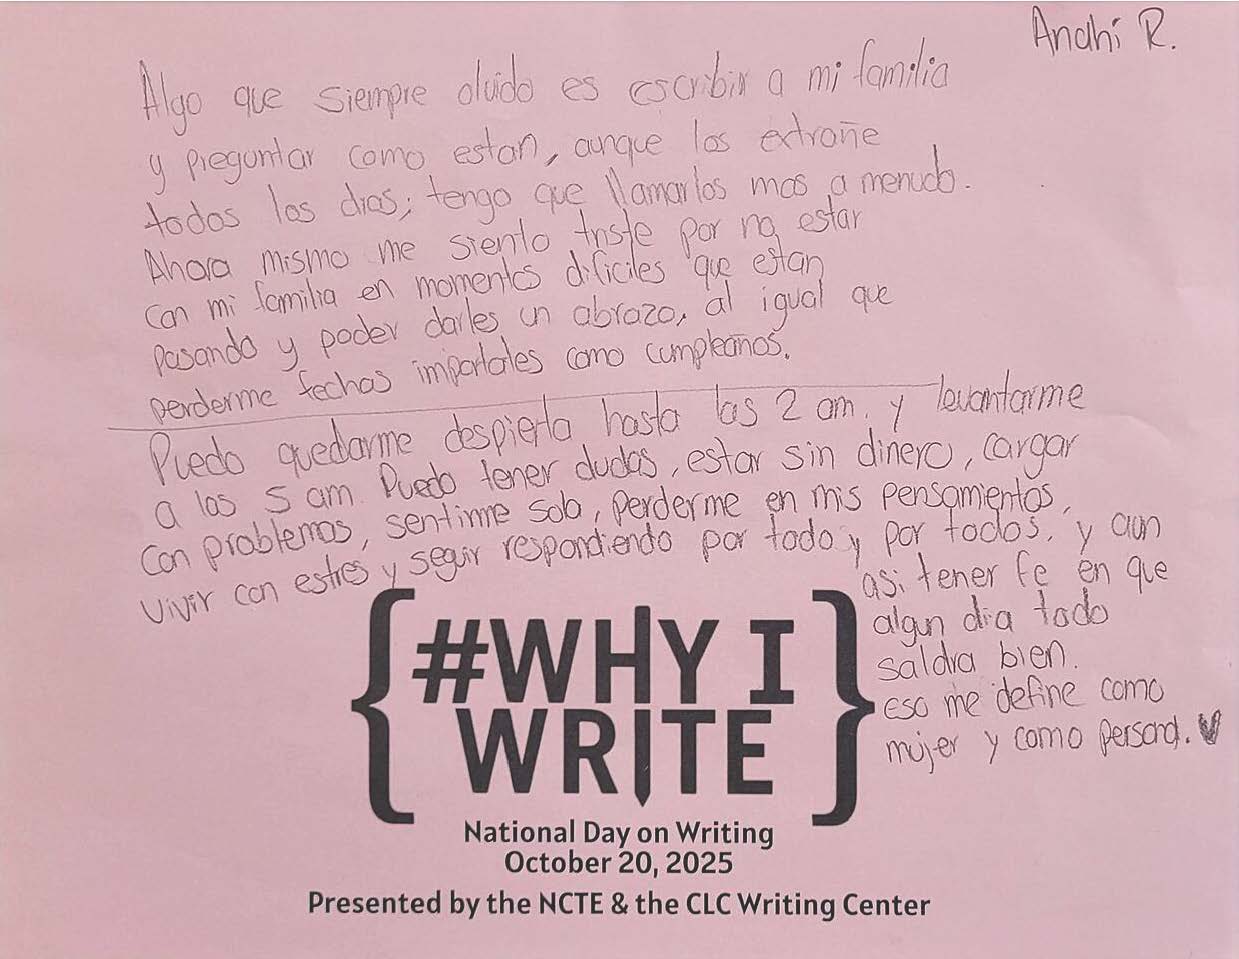 Anahí R.
Algo que siempre olvido es escribir a mi familia
y preguntar como estan, aunque los extrañe
todos los dias; tengo que llamarlos mas a menudo.
Ahora mismo me siento triste por no estar
con mi familia en momentos dificiles que estan
pasando y poder darles un abrazo, al igual que
perderme fechas importales como cumpleaños.
Puedo quedarme despierta hasta las 2 am. y levantarme
a las 5 am. Puedo tener dudas, estar sin dinero, cargar
con problemas, sentirme sola, perderme en mis pensamientos,
vivir con estres y seguir respondiendo por todo y por todos, y aun
asi tener fe en que
algun dia todo
saldra bien.
eso me define como
mujer y como persona. ♥
{#WHY I
WRITE}
National Day on Writing
October 20, 2025
Presented by the NCTE & the CLC Writing Center